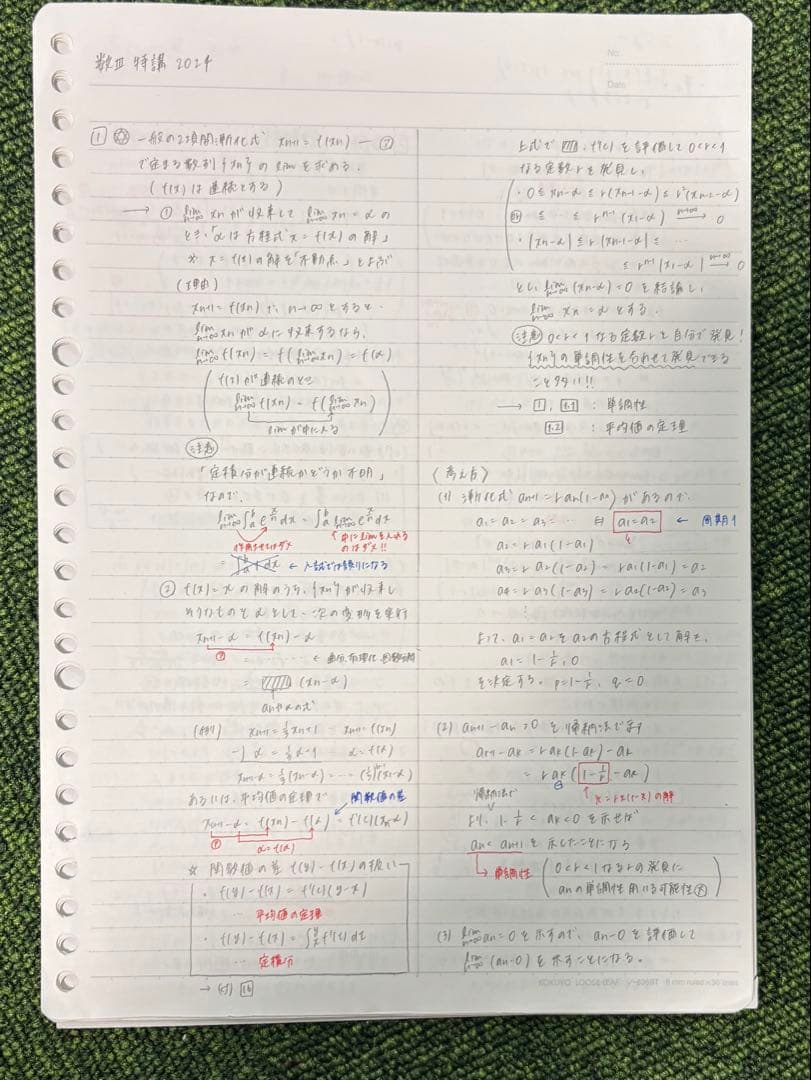 数Ⅲ 特講 2024
No.
Date
1 ◎ 一般の2項間漸化式 xn+1 = f(xn) ― ⑦
で定まる数列{xn}の limを求める.
(f(x)は連続とする)
→ ① lim n→∞ xn が収束して lim n→∞ xn = α の
とき.「αは方程式 x = f(x) の解」
※ x = f(x)の解を「不動点」とよぶ
(理由)
xn+1 = f(xn) で. n→∞ とすると.
lim n→∞ xn が αに収束するなら,
lim n→∞ f(xn) = f(lim n→∞ xn) = f(α)
f(x)が連続のとき
lim n→∞ f(xn) = f(lim n→∞ xn)
limが中に入る
注意
「定積分が連続かどうか不明」
なので,
lim n→∞ ∫ab e^(x/n) dx = ∫ab lim n→∞ e^(x/n) dx
中にlimを入れる
のはダメ!!
= ∫ab 1 dx ← 入試では誤りになる
② f(x) = x の解のうち, {xn}が収束し
そうなものを αとして. 次の変形を実行
xn+1 - α = f(xn) - α
⑦
= ‥‥‥ ←
= (xn-α)
anやαの式
(例) xn+1 = ½xn+1 … xn+1 = f(xn)
-) α = ½α+1 … α = f(α)
xn+1-α = ½(xn-α) = …
あるいは, 平均値の定理で
関数値の差
xn+1-α = f(xn) - f(α) = f'(c)(xn-α)
⑦
α = f(α)
☆ 関数値の差 f(y) - f(x) の扱い
・ f(y) - f(x) = f'(c)(y-x)
… 平均値の定理
・ f(y) - f(x) = ∫xy f'(t) dt
… 定積分
上式で , f'(c)を評価して 0<r<1
なる定数rを発見し,
・ 0 ≤ xn-α ≤ r(xn-1-α) ≤ r²(xn-2-α)
≤ ≤ r^n-1 (x1-α) n→∞→ 0
・ |xn-α| ≤ r|xn-1-α| ≤ …
≤ r^n-1 |x1-α| n→∞→ 0
とし, lim n→∞ (xn-α) = 0 を結論し,
lim n→∞ xn = α とする.
注意 0<r<1なる定数rを自分で発見!
{xn}の単調性を合わせて発見できる
こと多い!!
→ 1, 1.1 : 単調性
1.2 : 平均値の定理
〈考え方〉
(1) 漸化式 an+1 = r an(1-an) があるので,
a1 = a2 = a3 = … ⇔ a1 = a2 ← 周期1
a2 = r a1(1-a1)
a3 = r a2(1-a2) = r a1(1-a1) = a2
a4 = r a3(1-a3) = r a2(1-a2) = a3
⋮
よって, a1 = a2 を a2の方程式として解き,
a1 = 1-1/r, 0
を決定する. p = 1-1/r, q = 0
(2) an+1 - an > 0 を帰納法で示す
ak+1 - ak = r ak(1-ak) - ak
= r ak(1-1/r - ak)
x = rx(1-x)の解
帰納法で
より, 1-1/r < ak < 0 を示せば
an < an+1 を示したことになる
→ 単調性
0<r<1なるrの発見に
anの単調性用いる可能性大
(3) lim n→∞ an = 0 を示すので, an-0を評価して
lim n→∞ (an-0) を示すことになる.